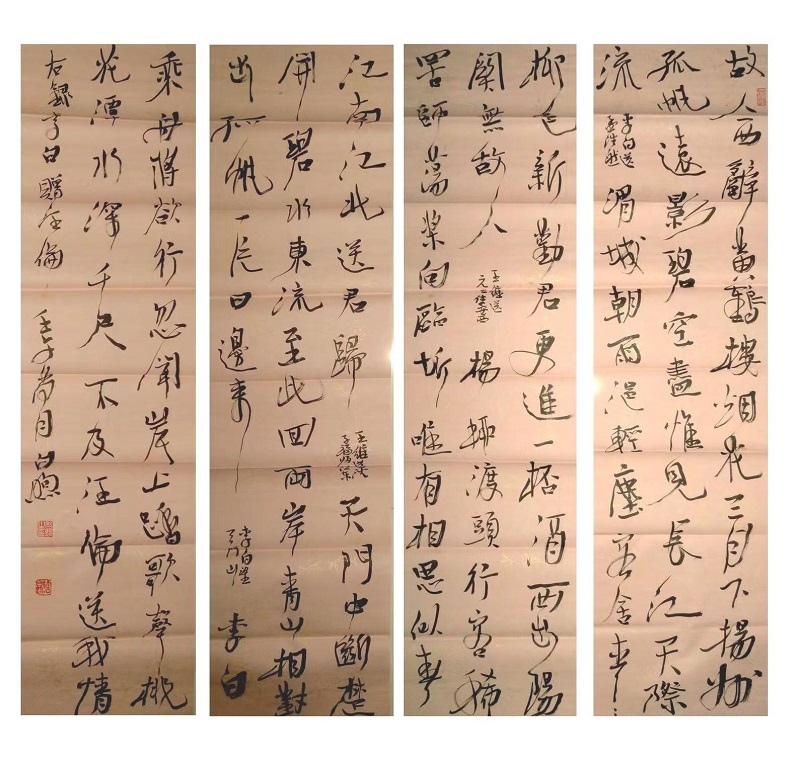 故人西辭黄鶴樓烟花三月下揚州
孤帆遠影碧空盡惟見長江天際
流
李白送
孟浩然
渭城朝雨浥輕塵客舍青
柳色新勸君更進一杯酒西出陽
關無故人
王維送
元二使安西
楊柳渡頭行客稀
罟師蕩槳向臨圻唯有相思似春
江南江北送君歸
王維送沈
子福歸江東
天門中斷楚
開碧水東流至此回兩岸青山相對
出孤帆一片日邊來
李白望
天門山
李白
乘舟將欲行忽聞岸上踏歌聲桃
花潭水深千尺不及汪倫送我情
右録李白贈汪倫 壬子 月白